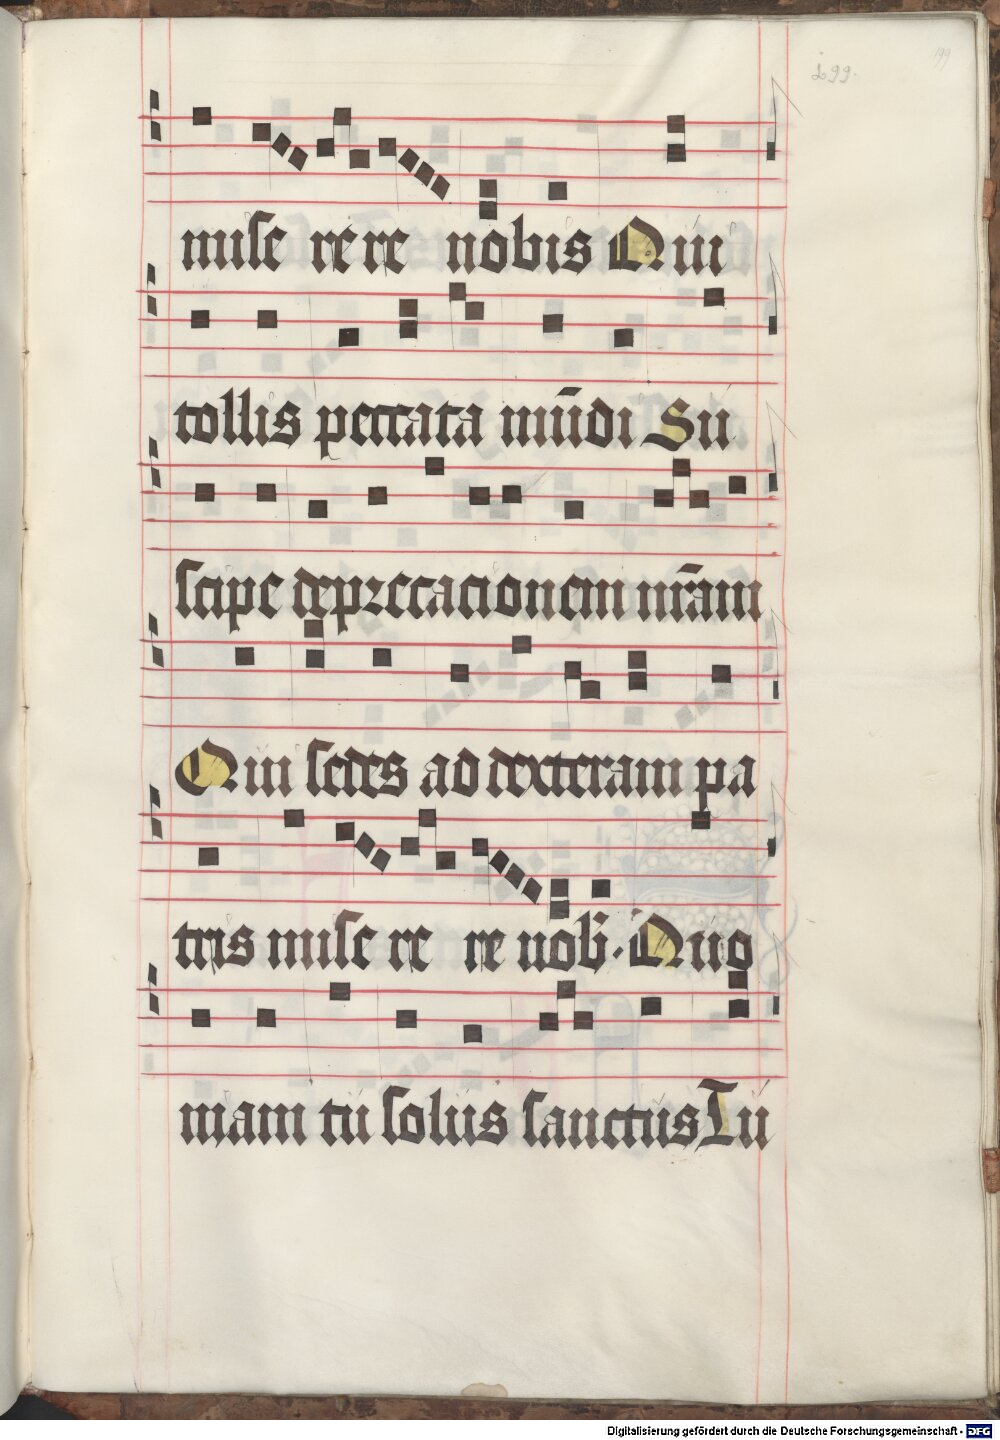 199.
199
mise rere nobis Qui
tollis peccata mūdi Su
scipe deprecacionem nrām
Qui sedes ad dexteram pa
tris mise re re nob. Quo
niam tu solus sanctus Tu
Digitalisierung gefördert durch die Deutsche Forschungsgemeinschaft - DFG